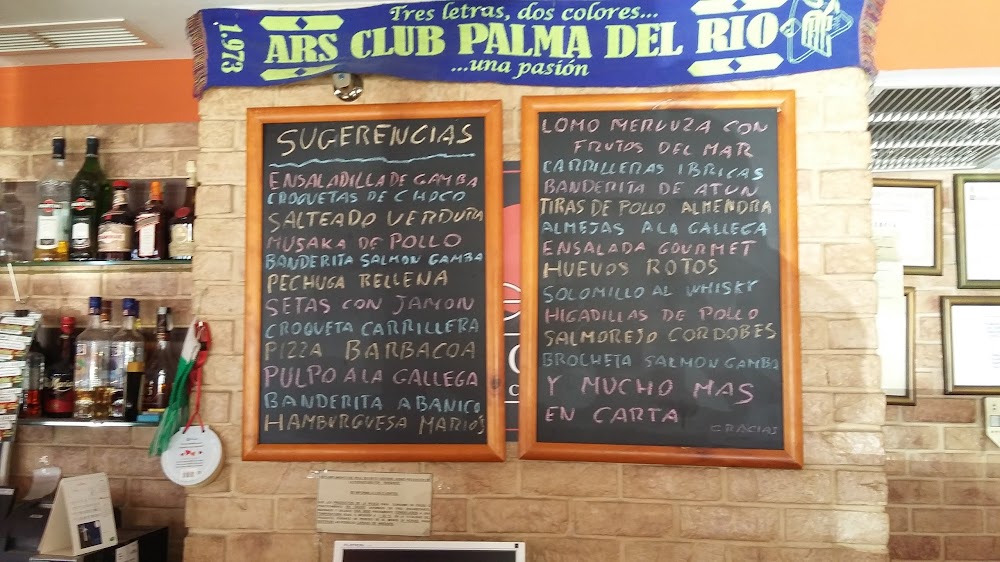 Tres letras, dos colores...
1.973
ARS CLUB PALMA DEL RIO
...una pasión
SUGERENCIAS
ENSALADILLA DE GAMBA
CROQUETAS DE CHOCO
SALTEADO VERDURA
MUSAKA DE POLLO
BANDERITA SALMON GAMBA
PECHUGA RELLENA
SETAS CON JAMON
CROQUETA CARRILLERA
PIZZA BARBACOA
PULPO A LA GALLEGA
BANDERITA ABANICO
HAMBURGUESA MARIO'S
LOMO MERLUZA CON
FRUTOS DEL MAR
CARRILLERAS IBRICAS
BANDERITA DE ATUN
TIRAS DE POLLO ALMENDRA
ALMEJAS A LA GALLEGA
ENSALADA GOURMET
HUEVOS ROTOS
SOLOMILLO AL WHISKY
HIGADILLAS DE POLLO
SALMOREJO CORDOBES
BROCHETA SALMON GAMBA
Y MUCHO MAS
EN CARTA
GRACIAS